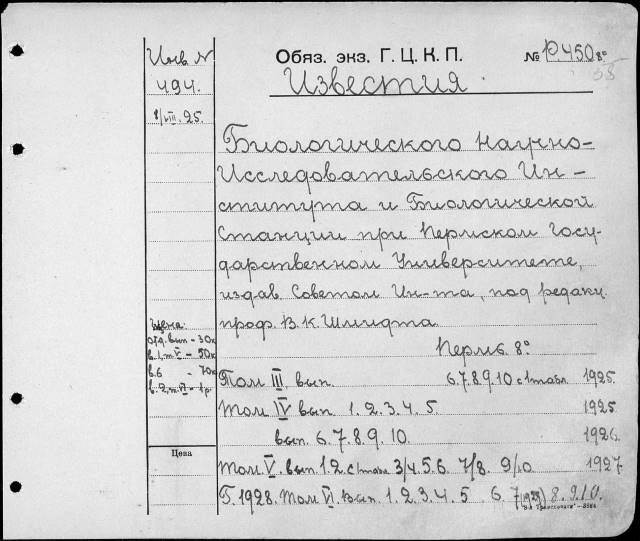 Инв. N
494.
8/VIII.25.
Обяз. экз. Г. Ц. К. П.
№ Р450 8°
Известия.
Биологического Научно-
Исследовательского Ин-
ститута и Биологической
Станции при Пермском Госу-
дарственном Университете,
издав. Советом Ин-та, под редакц.
проф. В. К. Шмидта.
Пермь. 8°
Цена:
отд. вып - 30к
в.1, т. V - 50к
в.6 - 70к
в.2, т. VI - 1р.
Том III, вып. 6.7.8.9.10 с 1 табл 1925.
Том IV вып. 1. 2. 3. 4. 5. 1925.
вып. 6. 7. 8. 9. 10. 1926.
Цена
Том V. вып. 1.2. с 1 табл 3/4.5.6. 7/8. 9/10. 1927.
Г. 1928. Том VI. вып. 1. 2. 3. 4. 5 6. 7 (1929) 8. 9.10.